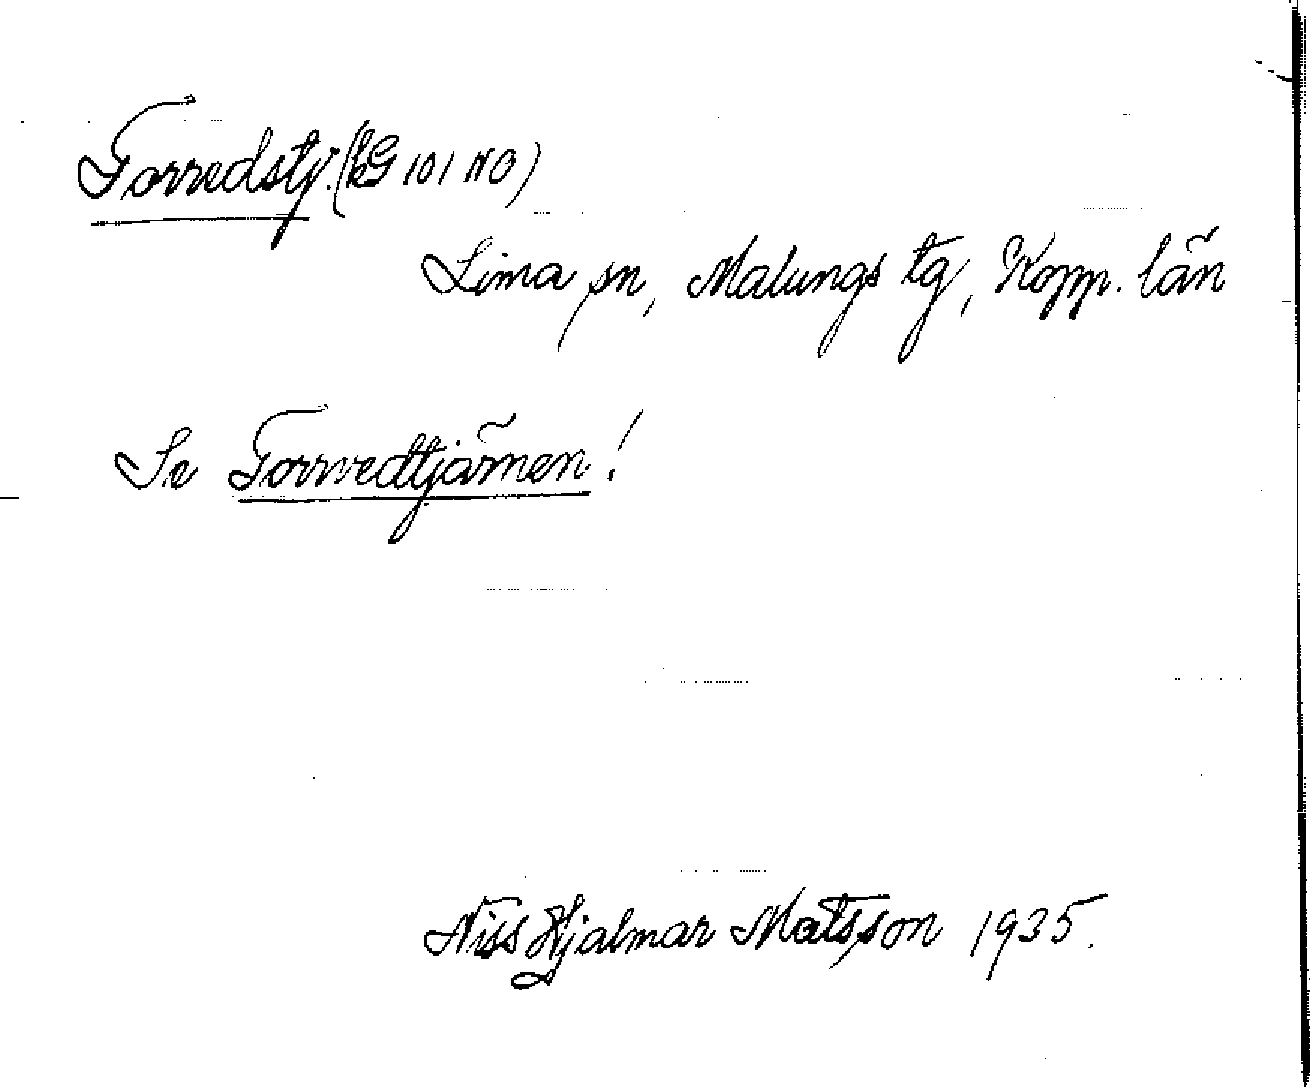 Torredstj. (kG 101 NO)
Lima sn, Malungs tg, Kopp. län
Se Torrvedtjärnen!
Niss Hjalmar Matsson 1935.